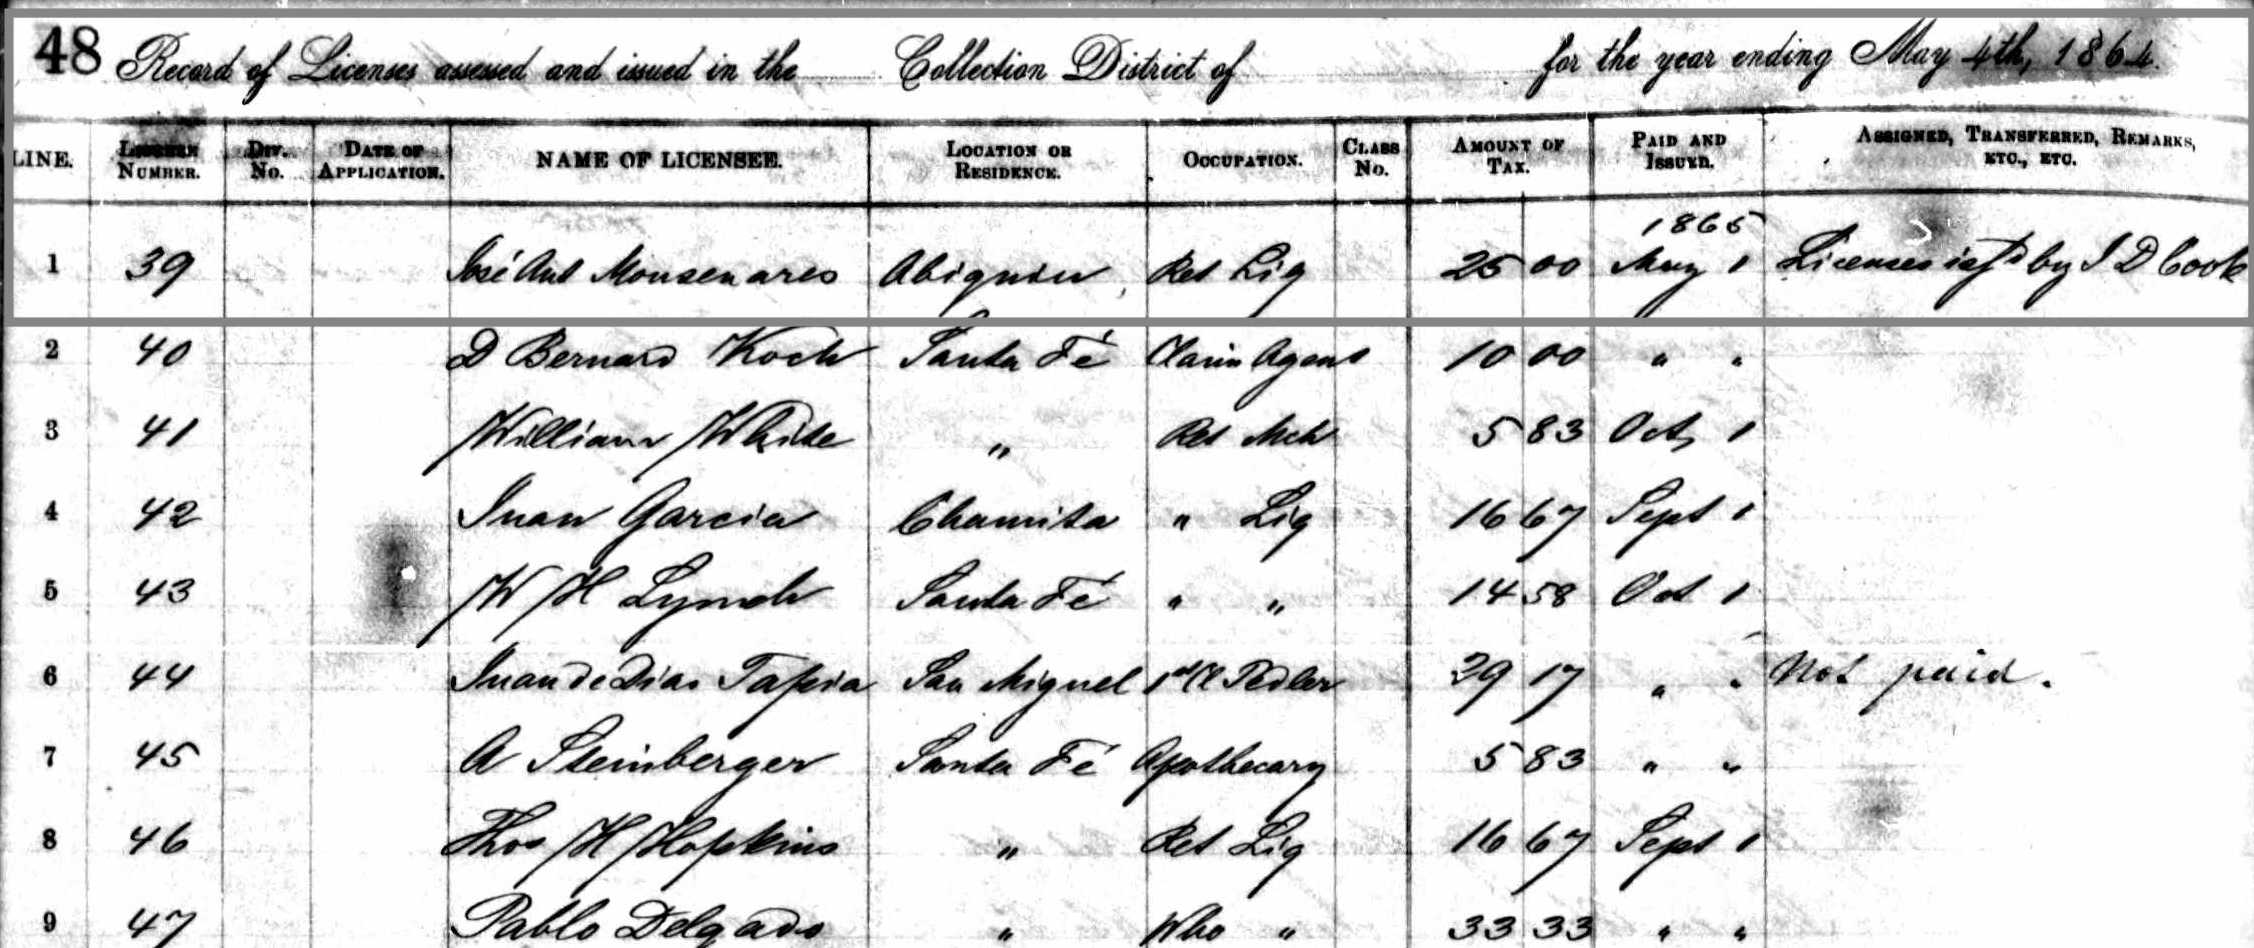 48 Record of Licenses assessed and issued in the Collection District of for the year ending May 4th, 1864.
LINE. LICENSE NUMBER. DIV. NO. DATE OF APPLICATION. NAME OF LICENSEE. LOCATION OR RESIDENCE. OCCUPATION. CLASS NO. AMOUNT OF TAX. PAID AND ISSUED. ASSIGNED, TRANSFERRED, REMARKS, ETC., ETC.
1865
1 39 José Ant Monsenares Abiquiu Ret Liq 25 00 May 1 Licenses by J D Cook
2 40 D Bernard Koch Santa Fé Claim Agent 10 00 " "
3 41 William White " Ret Mch 5 83 Oct 1
4 42 Juan Garcia Chamita " Liq 16 67 Sept 1
5 43 W H Lynch Santa Fé " " 14 58 Oct 1
6 44 Juan de Dias Tafoia San Miguel Pedler 29 17 " " Not paid.
7 45 A Steinberger Santa Fé Apothecary 5 83 " "
8 46 Thos H Hopkins " Ret Liq 16 67 Sept 1
9 47 Pablo Delgado " Who " 33 33 " "